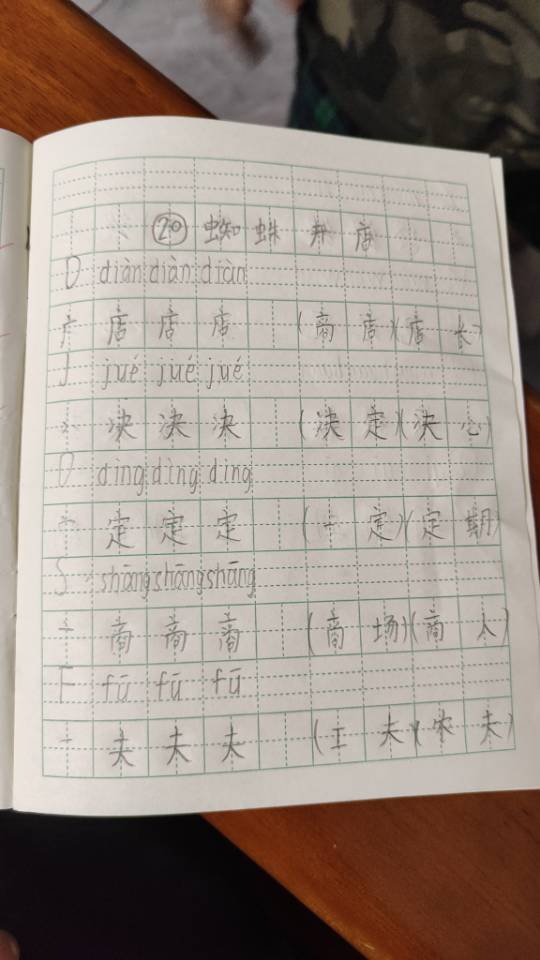 ⑳ 蜘蛛开店
D diàn diàn diàn
广 店 店 店 (商店)(店长)
J jué jué jué
冫 决 决 决 (决定)(决心)
D dìng dìng dìng
宀 定 定 定 (一定)(定期)
S shāng shāng shāng
亠 商 商 商 (商场)(商人)
F fū fū fū
一 夫 夫 夫 (工夫)(农夫)